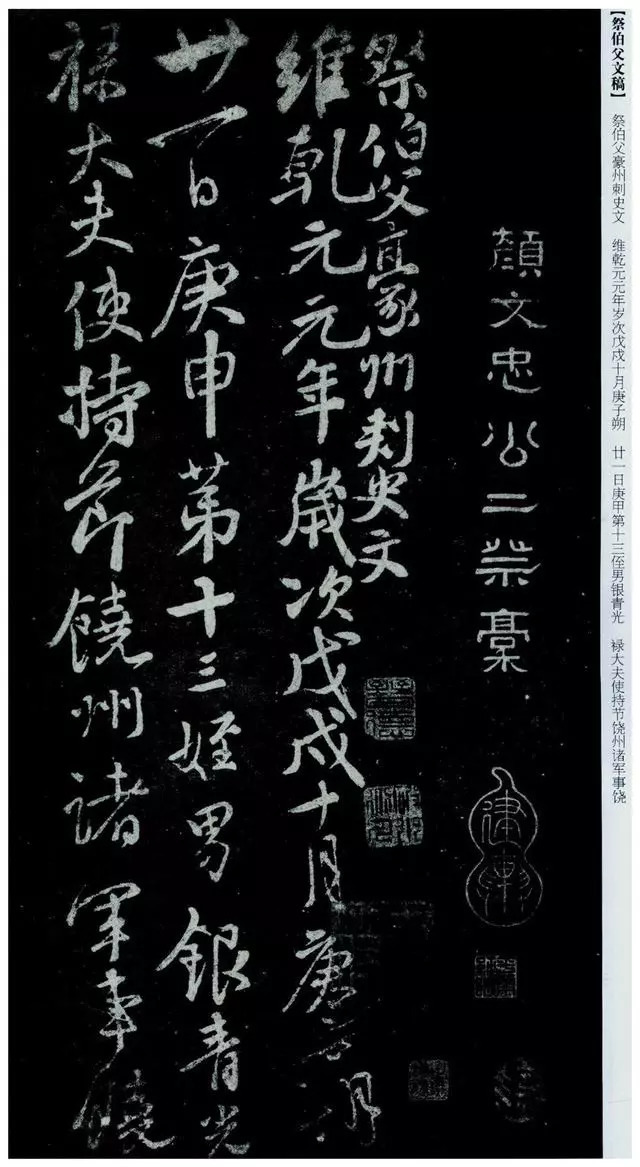 【祭伯父文稿】 祭伯父豪州刺史文 维乾元元年岁次戊戍十月庚子朔 廿一日庚甲第十三侄男银青光 禄大夫使持节饶州诸军事饶
顔文忠公二祭稾
祭伯父豪州刺史文
維乾元元年歲次戊戌十月庚子朔
廿一日庚申第十三姪男銀青光
祿大夫使持節饒州諸軍事饒